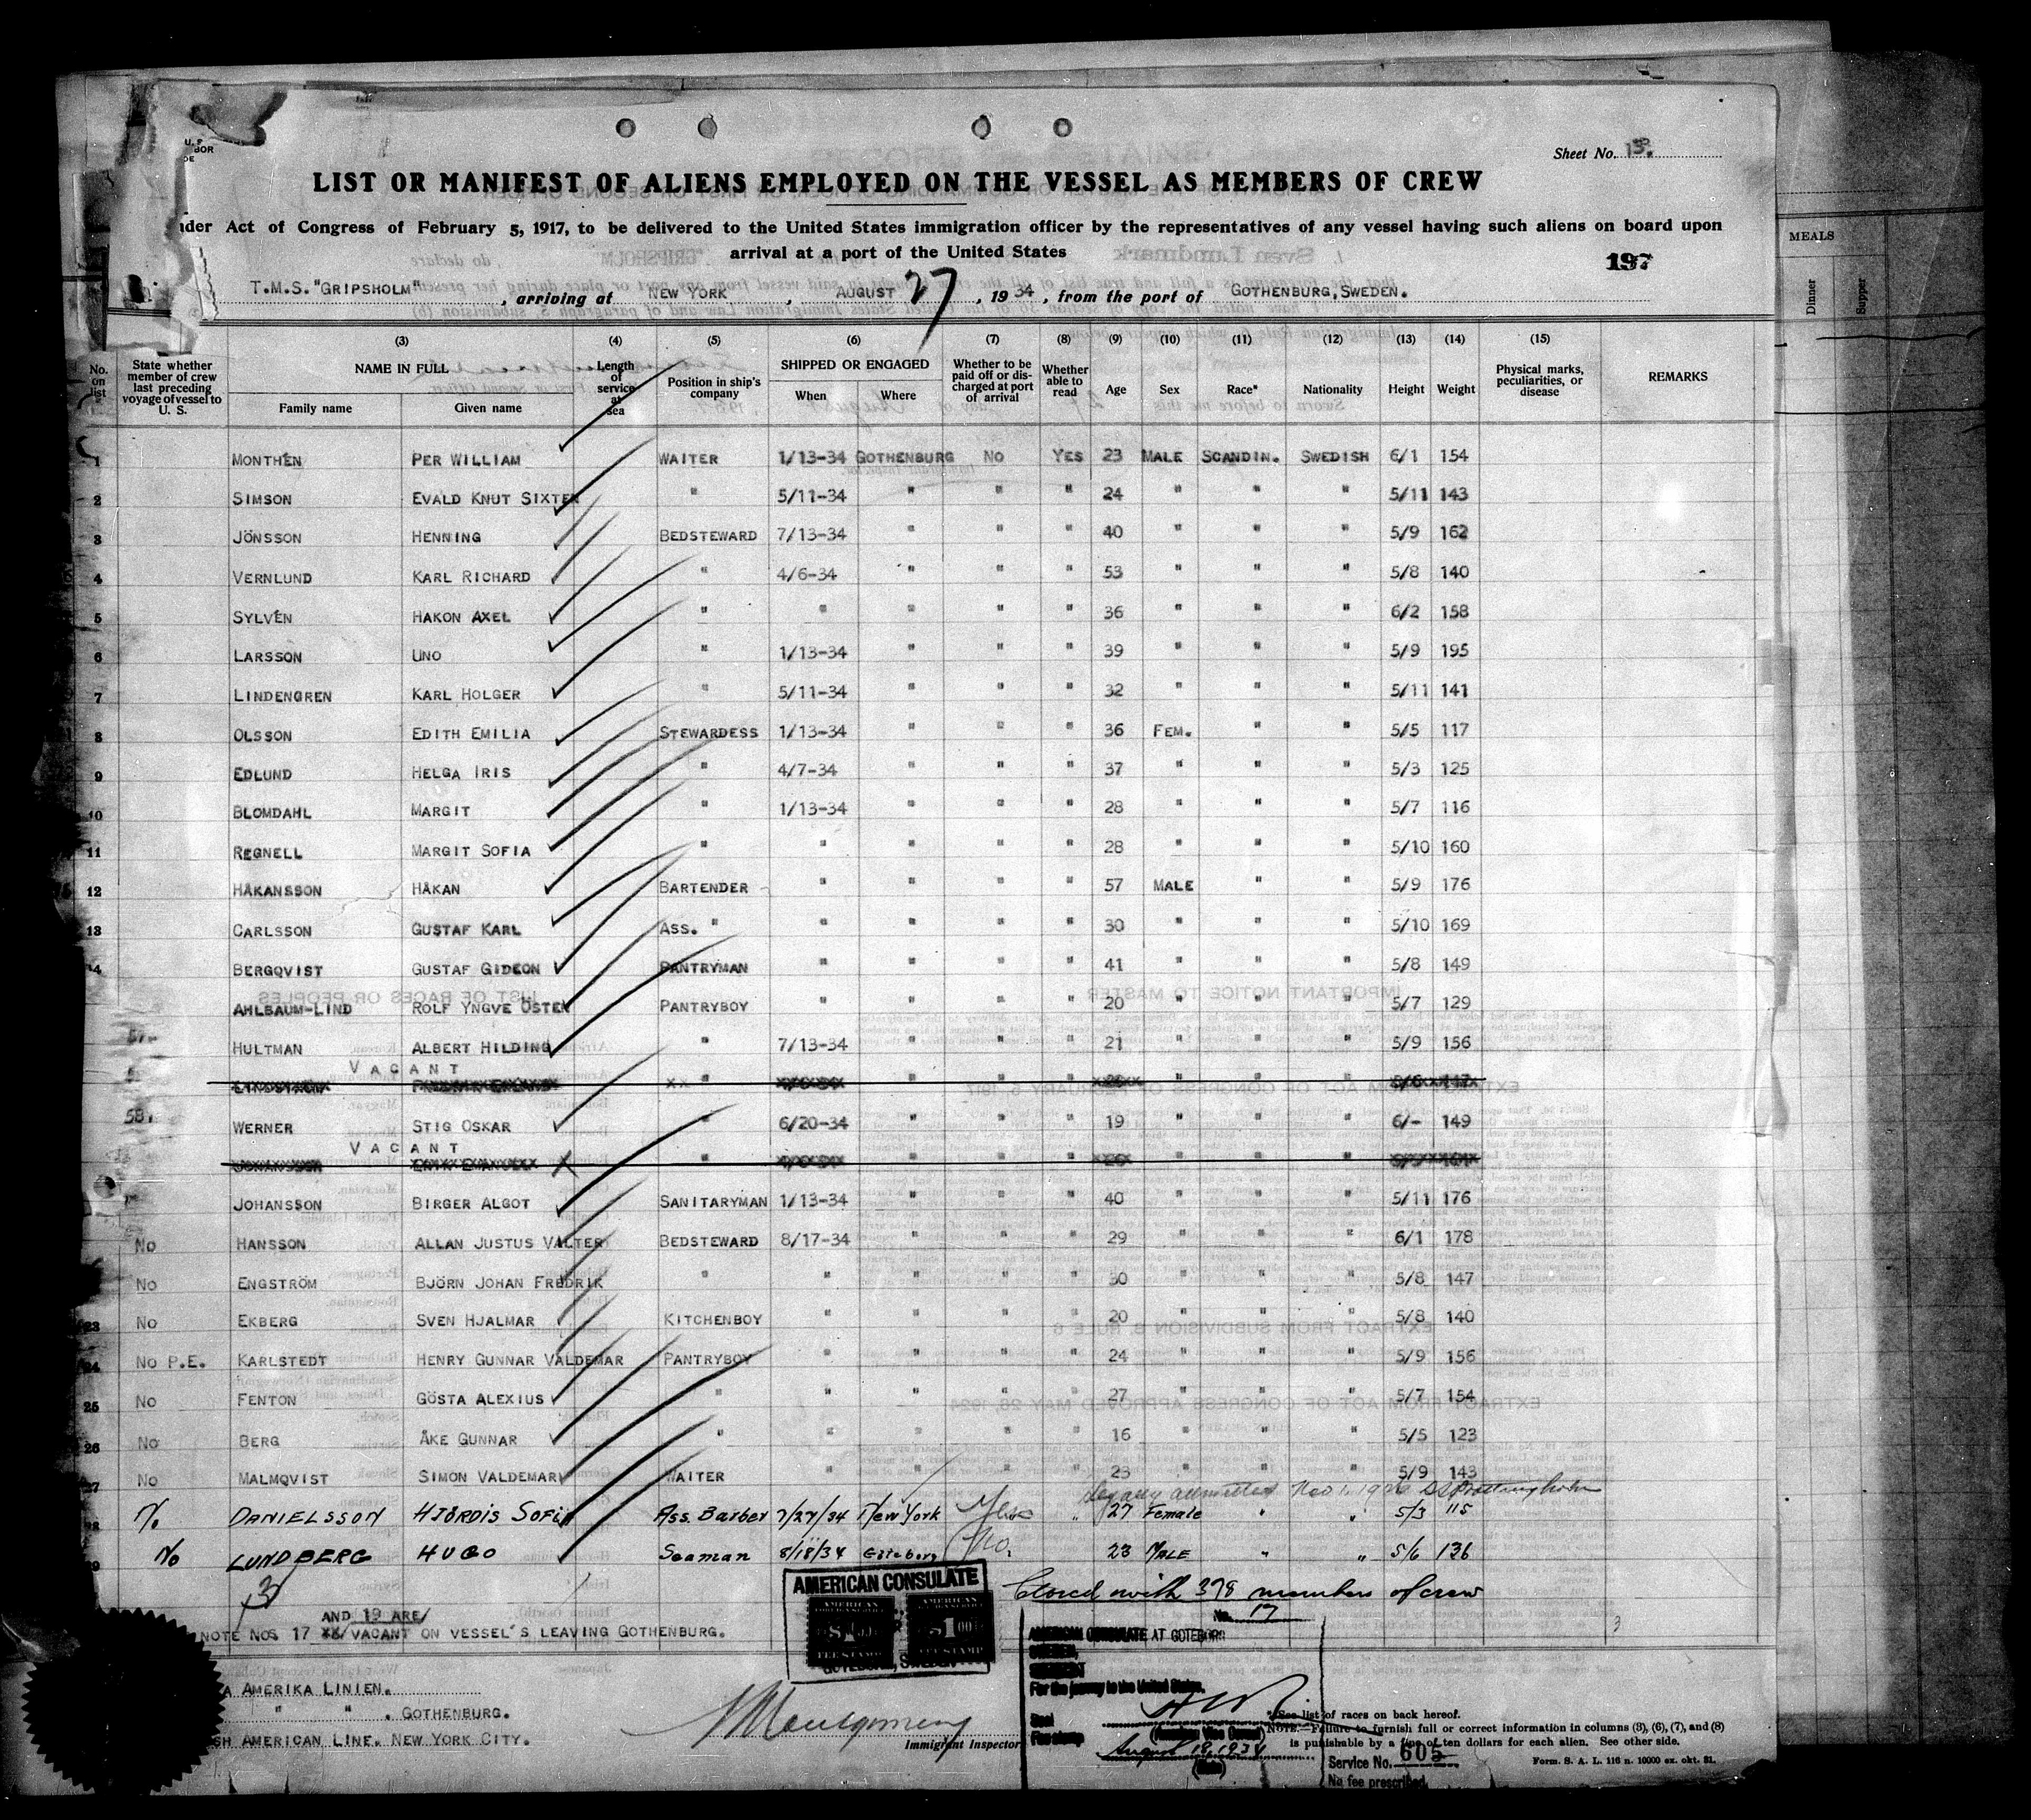 U. S.
BOR
Sheet No. 13.
LIST OR MANIFEST OF ALIENS EMPLOYED ON THE VESSEL AS MEMBERS OF CREW
der Act of Congress of February 5, 1917, to be delivered to the United States immigration officer by the representatives of any vessel having such aliens on board upon
arrival at a port of the United States
197
T.M.S. "GRIPSHOLM", arriving at NEW YORK, AUGUST 27, 1934, from the port of GOTHENBURG, SWEDEN.
MEALS
Dinner
Supper
(3) (4) (5) (6) (7) (8) (9) (10) (11) (12) (13) (14) (15)
No. on list State whether member of crew last preceding voyage of vessel to U. S. NAME IN FULL Family name Given name Length of service at sea Position in ship's company SHIPPED OR ENGAGED When Where Whether to be paid off or discharged at port of arrival Whether able to read Age Sex Race* Nationality Height Weight Physical marks, peculiarities, or disease REMARKS
1 MONTHÉN PER WILLIAM WAITER 1/13-34 GOTHENBURG NO YES 23 MALE SCANDIN. SWEDISH 6/1 154
2 SIMSON EVALD KNUT SIXTEN " 5/11-34 " " " 24 " " " 5/11 143
3 JÖNSSON HENNING BEDSTEWARD 7/13-34 " " " 40 " " " 5/9 162
4 VERNLUND KARL RICHARD " 4/6-34 " " " 53 " " " 5/8 140
5 SYLVÉN HAKON AXEL " " " " " 36 " " " 6/2 158
6 LARSSON UNO " 1/13-34 " " " 39 " " " 5/9 195
7 LINDENGREN KARL HOLGER " 5/11-34 " " " 32 " " " 5/11 141
8 OLSSON EDITH EMILIA STEWARDESS 1/13-34 " " " 36 FEM. " " 5/5 117
9 EDLUND HELGA IRIS " 4/7-34 " " " 37 " " " 5/3 125
10 BLOMDAHL MARGIT " 1/13-34 " " " 28 " " " 5/7 116
11 REGNELL MARGIT SOFIA " " " " " 28 " " " 5/10 160
12 HÅKANSSON HÅKAN BARTENDER " " " " 57 MALE " " 5/9 176
13 CARLSSON GUSTAF KARL ASS. " " " " " 30 " " " 5/10 169
14 BERGQVIST GUSTAF GIDEON PANTRYMAN " " " " 41 " " " 5/8 149
AHLBAUM-LIND ROLF YNGVE ÖSTEN PANTRYBOY " " " " 20 " " " 5/7 129
HULTMAN ALBERT HILDING " 7/13-34 " " " 21 " " " 5/9 156
VACANT
58. WERNER STIG OSKAR 6/20-34 " " " 19 " " " 6/- 149
VACANT
JOHANSSON BIRGER ALGOT SANITARYMAN 1/13-34 " " " 40 " " " 5/11 176
NO HANSSON ALLAN JUSTUS VALTER BEDSTEWARD 8/17-34 " " " 29 " " " 6/1 178
NO ENGSTRÖM BJÖRN JOHAN FREDRIK " " " " " 30 " " " 5/8 147
23 NO EKBERG SVEN HJALMAR KITCHENBOY " " " " 20 " " " 5/8 140
24 NO P.E. KARLSTEDT HENRY GUNNAR VALDEMAR PANTRYBOY " " " " 24 " " " 5/9 156
25 NO FENTON GÖSTA ALEXIUS " " " " " 27 " " " 5/7 154
26 NO BERG ÅKE GUNNAR " " " " " 16 " " " 5/5 123
27 NO MALMQVIST SIMON VALDEMAR WAITER " " " " 23 " " " 5/9 143
Legally admitted Nov 1, 1926 SS Drottningholm
28 No DANIELSSON HJÖRDIS SOFIA Ass. Barber 7/27/34 New York Yes " 27 Female " " 5/3 115
29 No LUNDBERG HUGO Seaman 8/18/34 Göteborg No. 23 MALE " " 5/6 136
Closed with 378 members of crew
AND 19 ARE/
NOTE NOS 17 VACANT ON VESSEL'S LEAVING GOTHENBURG.
AMERICAN CONSULATE
AMERICAN FOREIGN SERVICE $1.00 FEE STAMP
AMERICAN FOREIGN SERVICE $1.00 FEE STAMP
GOTEBORG, SWEDEN
No. 17
AMERICAN CONSULATE AT GOTEBORG
SWEDEN
For the journey to the United States.
Seal
Fee stamp
(American Vice Consul)
August 18, 1934
(Date)
Service No. 605
No fee prescribed.
A AMERIKA LINIEN.
" " . GOTHENBURG.
SH AMERICAN LINE. NEW YORK CITY.
Montgomery
Immigrant Inspector
*See list of races on back hereof.
NOTE.—Failure to furnish full or correct information in columns (3), (6), (7), and (8)
is punishable by a fine of ten dollars for each alien. See other side.
Form. S. A. L. 116 n. 10000 ex. okt. 31.